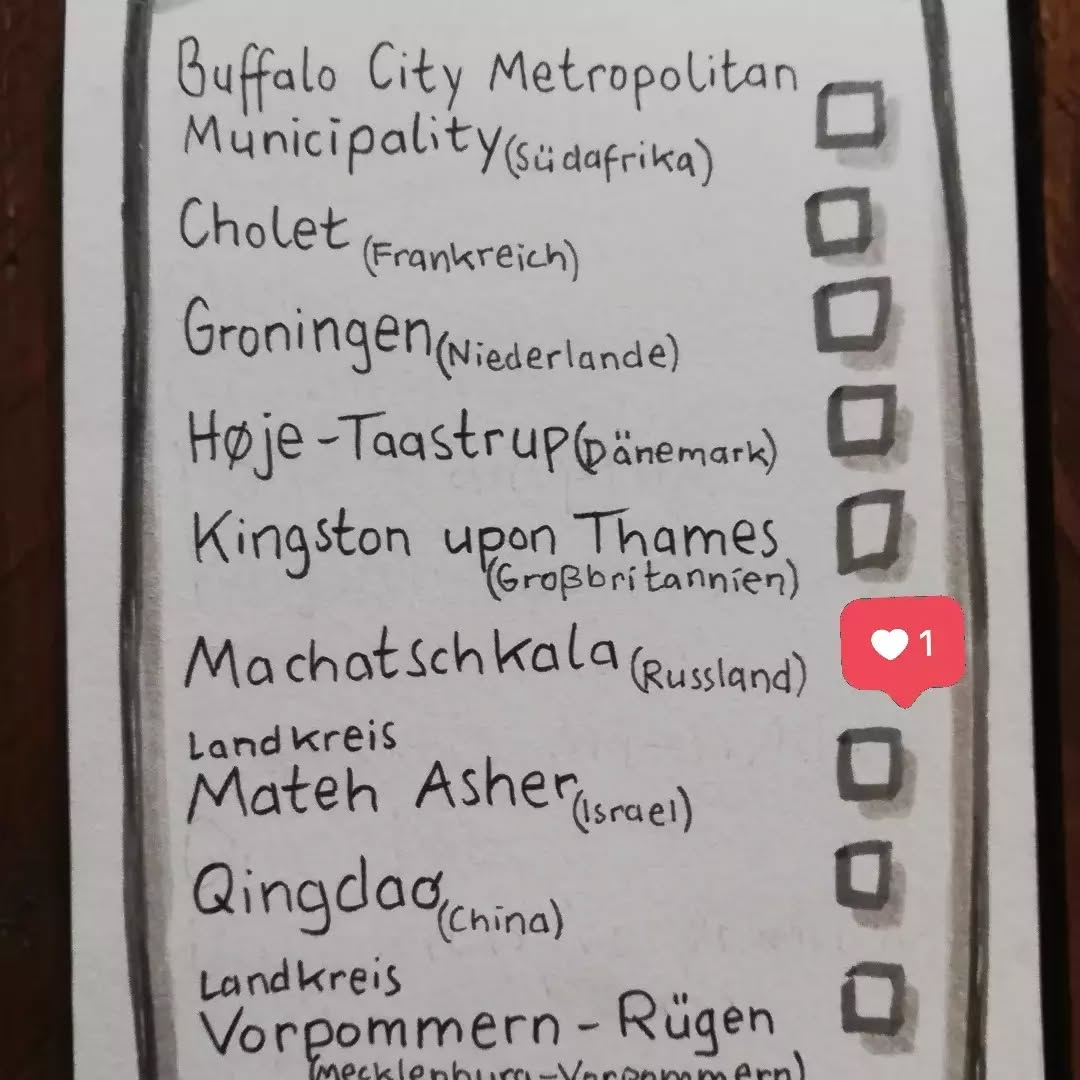 Buffalo City Metropolitan
Municipality (Südafrika)
Cholet (Frankreich)
Groningen (Niederlande)
Høje-Taastrup (Dänemark)
Kingston upon Thames
(Großbritannien)
Machatschkala (Russland)
1
Landkreis
Mateh Asher (Israel)
Qingdao (China)
Landkreis
Vorpommern-Rügen
(Mecklenburg-Vorpommern)